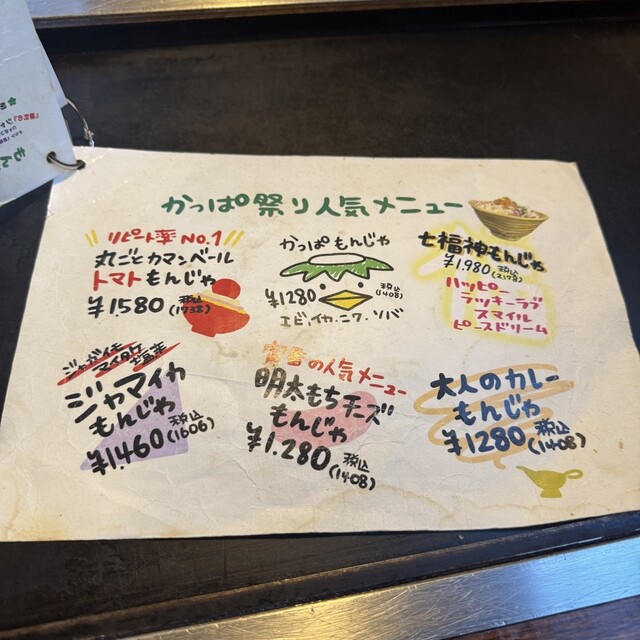 かっぱ祭り人気メニュー
リピート率No.1
丸ごとカマンベール
トマトもんじゃ
¥1580 税込(1738)
かっぱもんじゃ
¥1280 税込(1408)
エビ、イカ、ニク、ソバ
七福神もんじゃ
¥1.980 税込(2178)
ハッピー
ラッキーラブ
スマイル
ピースドリーム
ジャガイモ
マイタケ 塩辛
ジャマイカ
もんじゃ
¥1.460 税込(1606)
定番の人気メニュー
明太もちチーズ
もんじゃ
¥1.280 税込(1408)
大人のカレー
もんじゃ
¥1280 税込(1408)